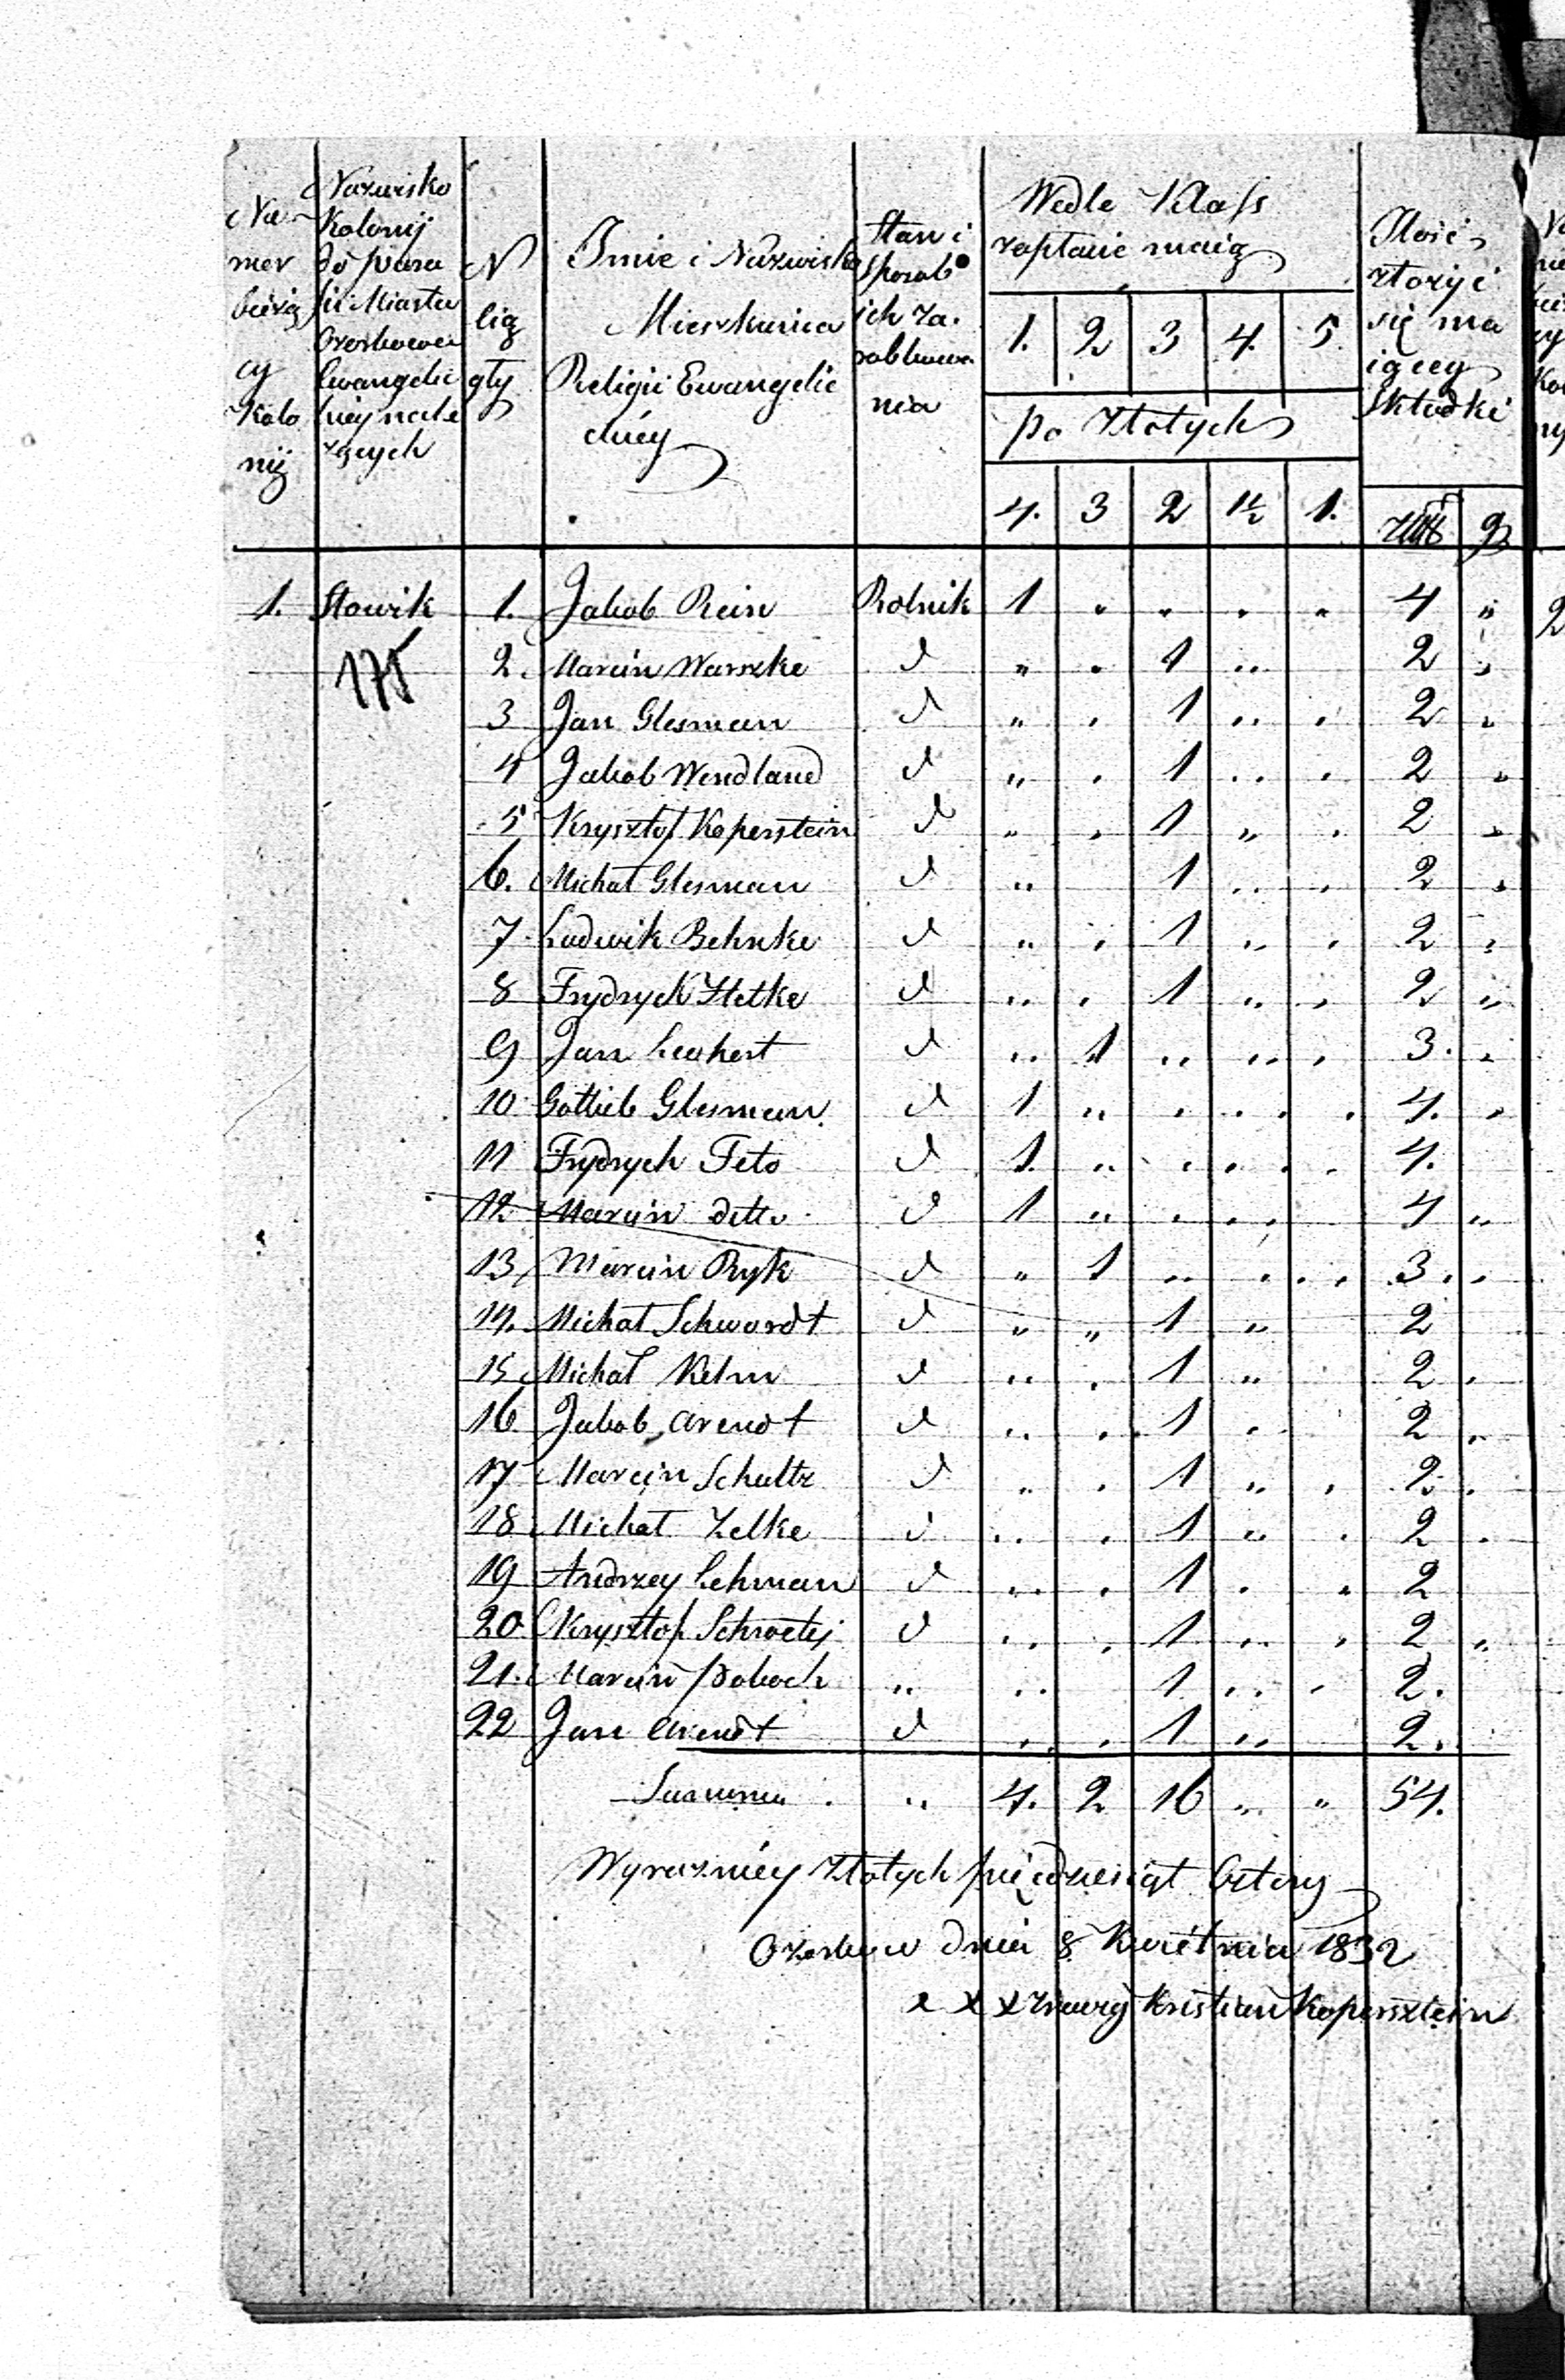 Numer bieżący Kolonij
Nazwisko Kolonij do para fii Miasta Ozorkowa Ewangelic kiey należ ących
N ciągły
Imie i Nazwisko Mieszkanca Religii Ewangelic kiéy
Stan i Sposob ich Za. robkowa nia
Wedle Klass
zapłacić maią
1. 2 3 4. 5.
po Złotych
4. 3 2 1½ 1.
Ilość złożyć się ma iącey Składki
złot gr
1. Słowik 1. Jakob Rein Rolnik 1 " " " " 4 "
175
2. Marcin Warszke d " " 1 " 2 "
3 Jan Glesman d " " 1 " " 2 "
4 Jakob Wendland d " " 1 " " 2 "
5 Krysztof Koperstein d " " 1 " " 2 "
6. Michał Glesman d " 1 " " 2 "
7 Ludwik Behnke d " " 1 " " 2 "
8 Frydrych Hetke d " " 1 " " 2 "
9 Jan Leckert d " 1 " " " 3. "
10 Gottlieb Glesman d 1 " " " " 4. "
11 Frydrych Teto d 1. " " " " 4.
12 Marcin detto d 1 " " " " 4 "
13 Marcin Ryk d " 1 " " " 3. "
14. Michał Schwardt d " " 1 " 2
15 Michał Kelm d " " 1 " 2 "
16 Jakob Arendt d " " 1 " 2 "
17 Marcin Schultz d " " 1 " " 2 "
18 Michał Zelke d " " 1 " " 2 "
19 Andrzey Lehman d " " 1 " " 2
20 Krysztof Schroeter d " " 1 " " 2 "
21. Marcin Poboch " " 1 " " 2.
22 Jan Arendt d " " 1 " 2.
Summa . " 4. 2 16 " " 54.
Wyrazniéy Złotych pięćdziesiąt Cztery
Ozorkow dnia 8 Kwietnia 1832
x x x znaczy Kristian Kopersztein